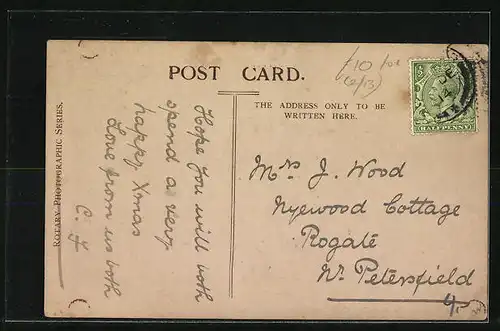 POST CARD.
THE ADDRESS ONLY TO BE
WRITTEN HERE.
ROTARY PHOTOGRAPHIC SERIES.
Hope you will both
spend a very
happy Xmas
Love from us both
C. F
Mrs J. Wood
Nyewood Cottage
Rogate
Nr Petersfield
HALFPENNY
DE
14